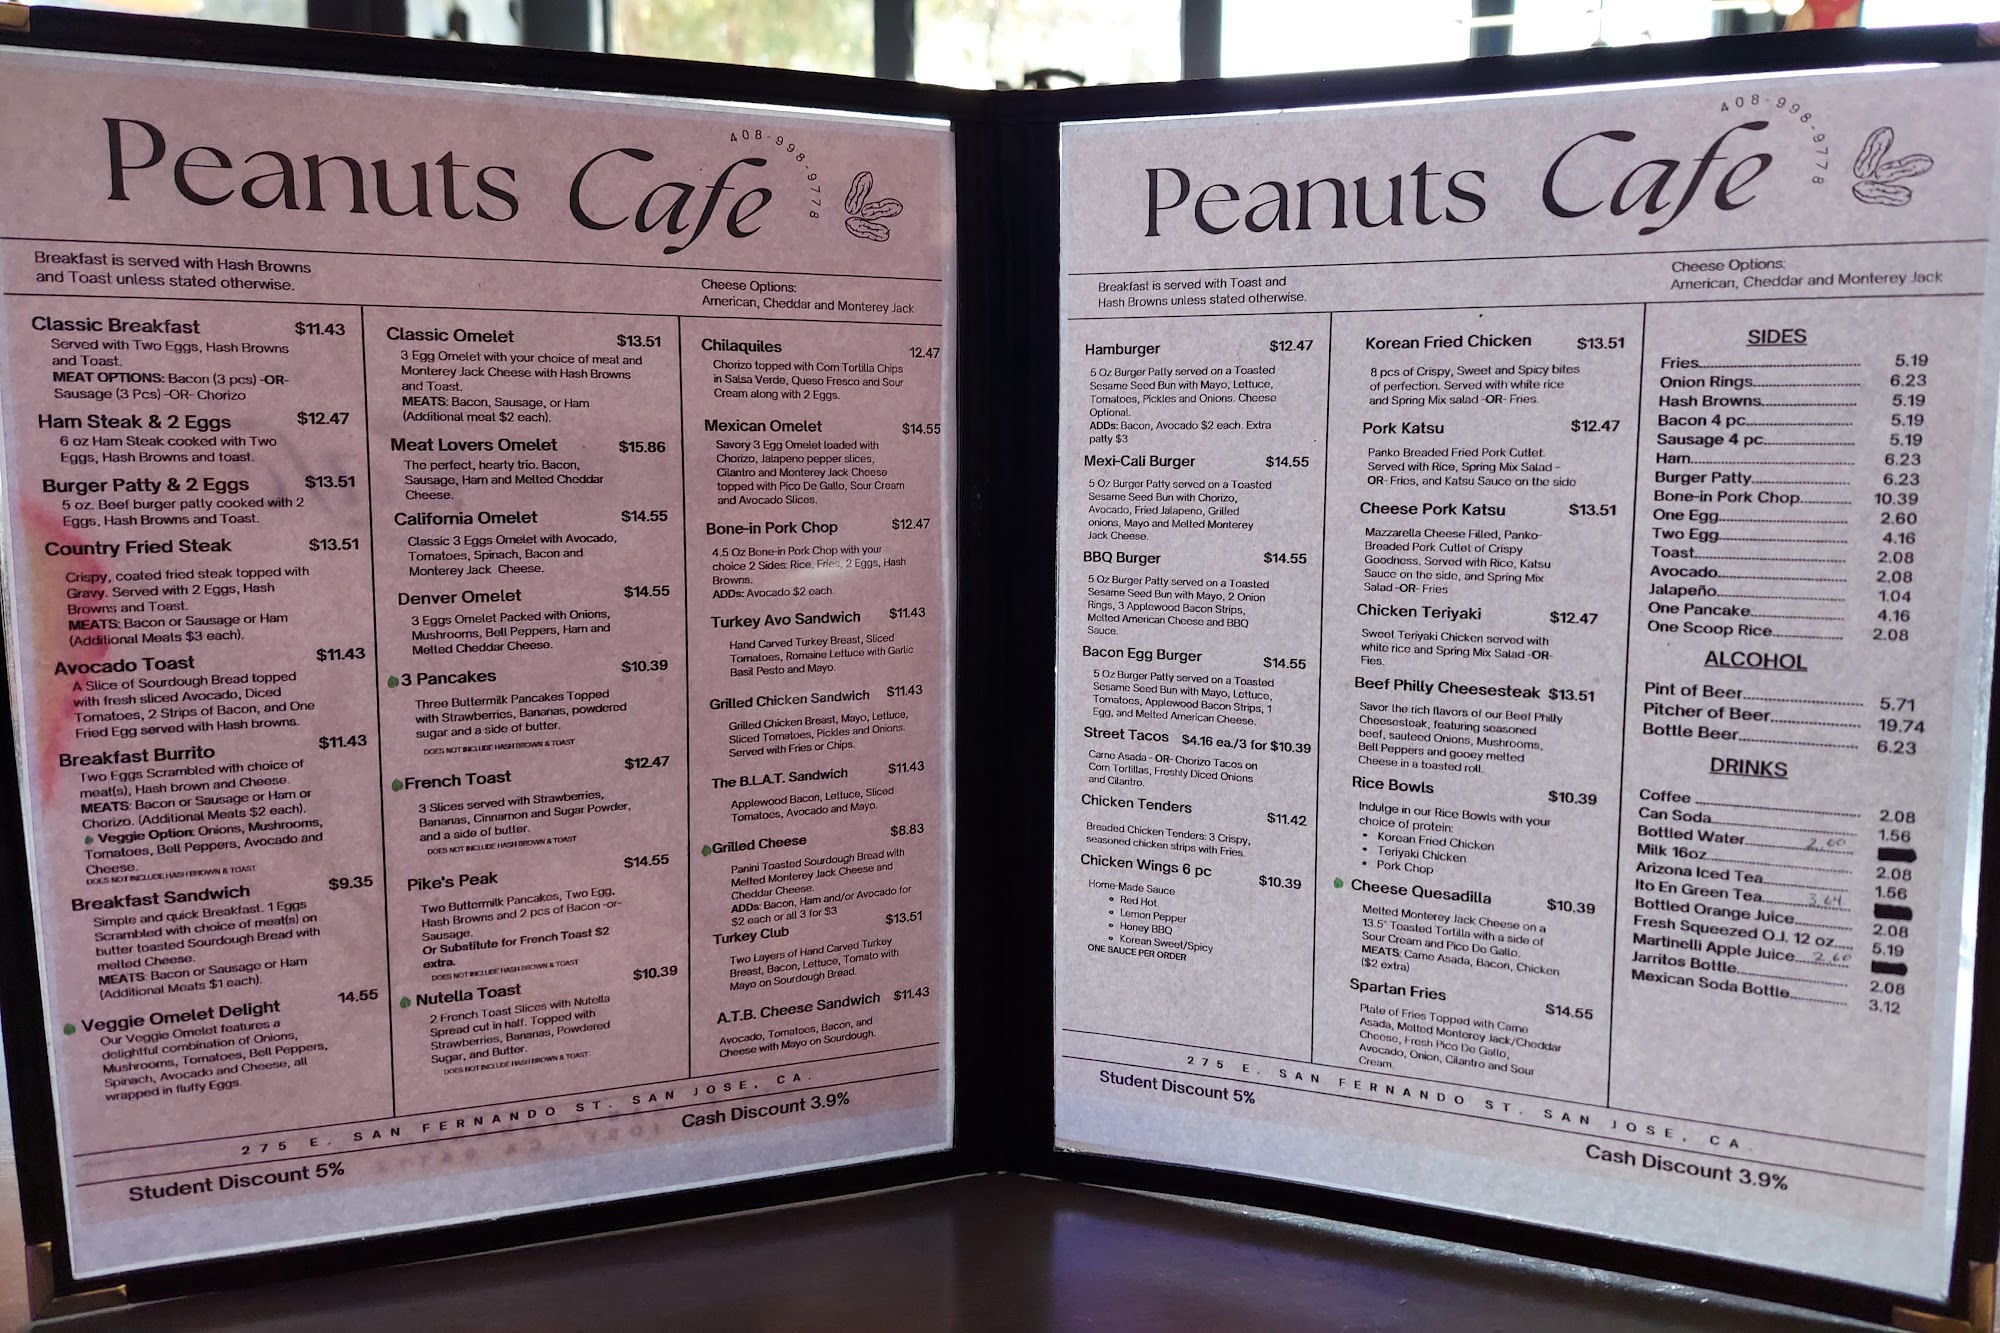 Peanuts Cafe
408-998-9778
Breakfast is served with Hash Browns
and Toast unless stated otherwise.
Cheese Options:
American, Cheddar and Monterey Jack
Classic Breakfast $11.43
Served with Two Eggs, Hash Browns
and Toast.
MEAT OPTIONS: Bacon (3 pcs) -OR-
Sausage (3 Pcs) -OR- Chorizo
Ham Steak & 2 Eggs $12.47
6 oz Ham Steak cooked with Two
Eggs, Hash Browns and toast.
Burger Patty & 2 Eggs $13.51
5 oz. Beef burger patty cooked with 2
Eggs, Hash Browns and Toast.
Country Fried Steak $13.51
Crispy, coated fried steak topped with
Gravy. Served with 2 Eggs, Hash
Browns and Toast.
MEATS: Bacon or Sausage or Ham
(Additional Meats $3 each).
Avocado Toast $11.43
A Slice of Sourdough Bread topped
with fresh sliced Avocado, Diced
Tomatoes, 2 Strips of Bacon, and One
Fried Egg served with Hash browns.
Breakfast Burrito $11.43
Two Eggs Scrambled with choice of
meat(s), Hash brown and Cheese.
MEATS: Bacon or Sausage or Ham or
Chorizo. (Additional Meats $2 each).
Veggie Option: Onions, Mushrooms,
Tomatoes, Bell Peppers, Avocado and
Cheese.
DOES NOT INCLUDE HASH BROWN & TOAST
Breakfast Sandwich $9.35
Simple and quick Breakfast. 1 Eggs
Scrambled with choice of meat(s) on
butter toasted Sourdough Bread with
melted Cheese.
MEATS: Bacon or Sausage or Ham
(Additional Meats $1 each).
Veggie Omelet Delight 14.55
Our Veggie Omelet features a
delightful combination of Onions,
Mushrooms, Tomatoes, Bell Peppers,
Spinach, Avocado and Cheese, all
wrapped in fluffy Eggs.
Classic Omelet $13.51
3 Egg Omelet with your choice of meat and
Monterey Jack Cheese with Hash Browns
and Toast.
MEATS: Bacon, Sausage, or Ham
(Additional meat $2 each).
Meat Lovers Omelet $15.86
The perfect, hearty trio. Bacon,
Sausage, Ham and Melted Cheddar
Cheese.
California Omelet $14.55
Classic 3 Eggs Omelet with Avocado,
Tomatoes, Spinach, Bacon and
Monterey Jack Cheese.
Denver Omelet $14.55
3 Eggs Omelet Packed with Onions,
Mushrooms, Bell Peppers, Ham and
Melted Cheddar Cheese.
3 Pancakes $10.39
Three Buttermilk Pancakes Topped
with Strawberries, Bananas, powdered
sugar and a side of butter.
DOES NOT INCLUDE HASH BROWN & TOAST
French Toast $12.47
3 Slices served with Strawberries,
Bananas, Cinnamon and Sugar Powder,
and a side of butter.
DOES NOT INCLUDE HASH BROWN & TOAST
Pike's Peak $14.55
Two Buttermilk Pancakes, Two Egg,
Hash Browns and 2 pcs of Bacon -or-
Sausage.
Or Substitute for French Toast $2
extra.
DOES NOT INCLUDE HASH BROWN & TOAST
Nutella Toast $10.39
2 French Toast Slices with Nutella
Spread cut in half. Topped with
Strawberries, Bananas, Powdered
Sugar, and Butter.
DOES NOT INCLUDE HASH BROWN & TOAST
Chilaquiles 12.47
Chorizo topped with Corn Tortilla Chips
in Salsa Verde, Queso Fresco and Sour
Cream along with 2 Eggs.
Mexican Omelet $14.55
Savory 3 Egg Omelet loaded with
Chorizo, Jalapeno pepper slices,
Cilantro and Monterey Jack Cheese
topped with Pico De Gallo, Sour Cream
and Avocado Slices.
Bone-in Pork Chop $12.47
4.5 Oz Bone-in Pork Chop with your
choice 2 Sides: Rice, Fries, 2 Eggs, Hash
Browns.
ADDs: Avocado $2 each.
Turkey Avo Sandwich $11.43
Hand Carved Turkey Breast, Sliced
Tomatoes, Romaine Lettuce with Garlic
Basil Pesto and Mayo.
Grilled Chicken Sandwich $11.43
Grilled Chicken Breast, Mayo, Lettuce,
Sliced Tomatoes, Pickles and Onions.
Served with Fries or Chips.
The B.L.A.T. Sandwich $11.43
Applewood Bacon, Lettuce, Sliced
Tomatoes, Avocado and Mayo.
Grilled Cheese $8.83
Panini Toasted Sourdough Bread with
Melted Monterey Jack Cheese and
Cheddar Cheese.
ADDs: Bacon, Ham and/or Avocado for
$2 each or all 3 for $3
Turkey Club $13.51
Two Layers of Hand Carved Turkey
Breast, Bacon, Lettuce, Tomato with
Mayo on Sourdough Bread.
A.T.B. Cheese Sandwich $11.43
Avocado, Tomatoes, Bacon, and
Cheese with Mayo on Sourdough.
275 E. SAN FERNANDO ST. SAN JOSE, CA.
Student Discount 5%
Cash Discount 3.9%
Peanuts Cafe
408-998-9778
Breakfast is served with Toast and
Hash Browns unless stated otherwise.
Cheese Options:
American, Cheddar and Monterey Jack
Hamburger $12.47
5 Oz Burger Patty served on a Toasted
Sesame Seed Bun with Mayo, Lettuce,
Tomatoes, Pickles and Onions. Cheese
Optional.
ADDs: Bacon, Avocado $2 each. Extra
patty $3
Mexi-Cali Burger $14.55
5 Oz Burger Patty served on a Toasted
Sesame Seed Bun with Chorizo,
Avocado, Fried Jalapeno, Grilled
onions, Mayo and Melted Monterey
Jack Cheese.
BBQ Burger $14.55
5 Oz Burger Patty served on a Toasted
Sesame Seed Bun with Mayo, 2 Onion
Rings, 3 Applewood Bacon Strips,
Melted American Cheese and BBQ
Sauce.
Bacon Egg Burger $14.55
5 Oz Burger Patty served on a Toasted
Sesame Seed Bun with Mayo, Lettuce,
Tomatoes, Applewood Bacon Strips, 1
Egg, and Melted American Cheese.
Street Tacos $4.16 ea./3 for $10.39
Carne Asada -OR- Chorizo Tacos on
Corn Tortillas, Freshly Diced Onions
and Cilantro.
Chicken Tenders $11.42
Breaded Chicken Tenders: 3 Crispy,
seasoned chicken strips with Fries.
Chicken Wings 6 pc $10.39
Home-Made Sauce
• Red Hot
• Lemon Pepper
• Honey BBQ
• Korean Sweet/Spicy
ONE SAUCE PER ORDER
Korean Fried Chicken $13.51
8 pcs of Crispy, Sweet and Spicy bites
of perfection. Served with white rice
and Spring Mix salad -OR- Fries.
Pork Katsu $12.47
Panko Breaded Fried Pork Cutlet.
Served with Rice, Spring Mix Salad -
OR- Fries, and Katsu Sauce on the side
Cheese Pork Katsu $13.51
Mazzarella Cheese Filled, Panko-
Breaded Pork Cutlet of Crispy
Goodness. Served with Rice, Katsu
Sauce on the side, and Spring Mix
Salad -OR- Fries
Chicken Teriyaki $12.47
Sweet Teriyaki Chicken served with
white rice and Spring Mix Salad -OR-
Fries.
Beef Philly Cheesesteak $13.51
Savor the rich flavors of our Beef Philly
Cheesesteak, featuring seasoned
beef, sauteed Onions, Mushrooms,
Bell Peppers and gooey melted
Cheese in a toasted roll.
Rice Bowls $10.39
Indulge in our Rice Bowls with your
choice of protein:
• Korean Fried Chicken
• Teriyaki Chicken
• Pork Chop
Cheese Quesadilla $10.39
Melted Monterey Jack Cheese on a
13.5" Toasted Tortilla with a side of
Sour Cream and Pico De Gallo.
MEATS: Carne Asada, Bacon, Chicken
($2 extra)
Spartan Fries $14.55
Plate of Fries Topped with Carne
Asada, Melted Monterey Jack/Cheddar
Cheese, Fresh Pico De Gallo,
Avocado, Onion, Cilantro and Sour
Cream.
SIDES
Fries 5.19
Onion Rings 6.23
Hash Browns 5.19
Bacon 4 pc 5.19
Sausage 4 pc 5.19
Ham 6.23
Burger Patty 6.23
Bone-in Pork Chop 10.39
One Egg 2.60
Two Egg 4.16
Toast 2.08
Avocado 2.08
Jalapeño 1.04
One Pancake 4.16
One Scoop Rice 2.08
ALCOHOL
Pint of Beer 5.71
Pitcher of Beer 19.74
Bottle Beer 6.23
DRINKS
Coffee 2.08
Can Soda 1.56
Bottled Water 2.60
Milk 16oz 2.08
Arizona Iced Tea 1.56
Ito En Green Tea 3.64
Bottled Orange Juice 2.08
Fresh Squeezed O.J. 12 oz 5.19
Martinelli Apple Juice 2.60
Jarritos Bottle 2.08
Mexican Soda Bottle 3.12
275 E. SAN FERNANDO ST. SAN JOSE, CA
Student Discount 5%
Cash Discount 3.9%